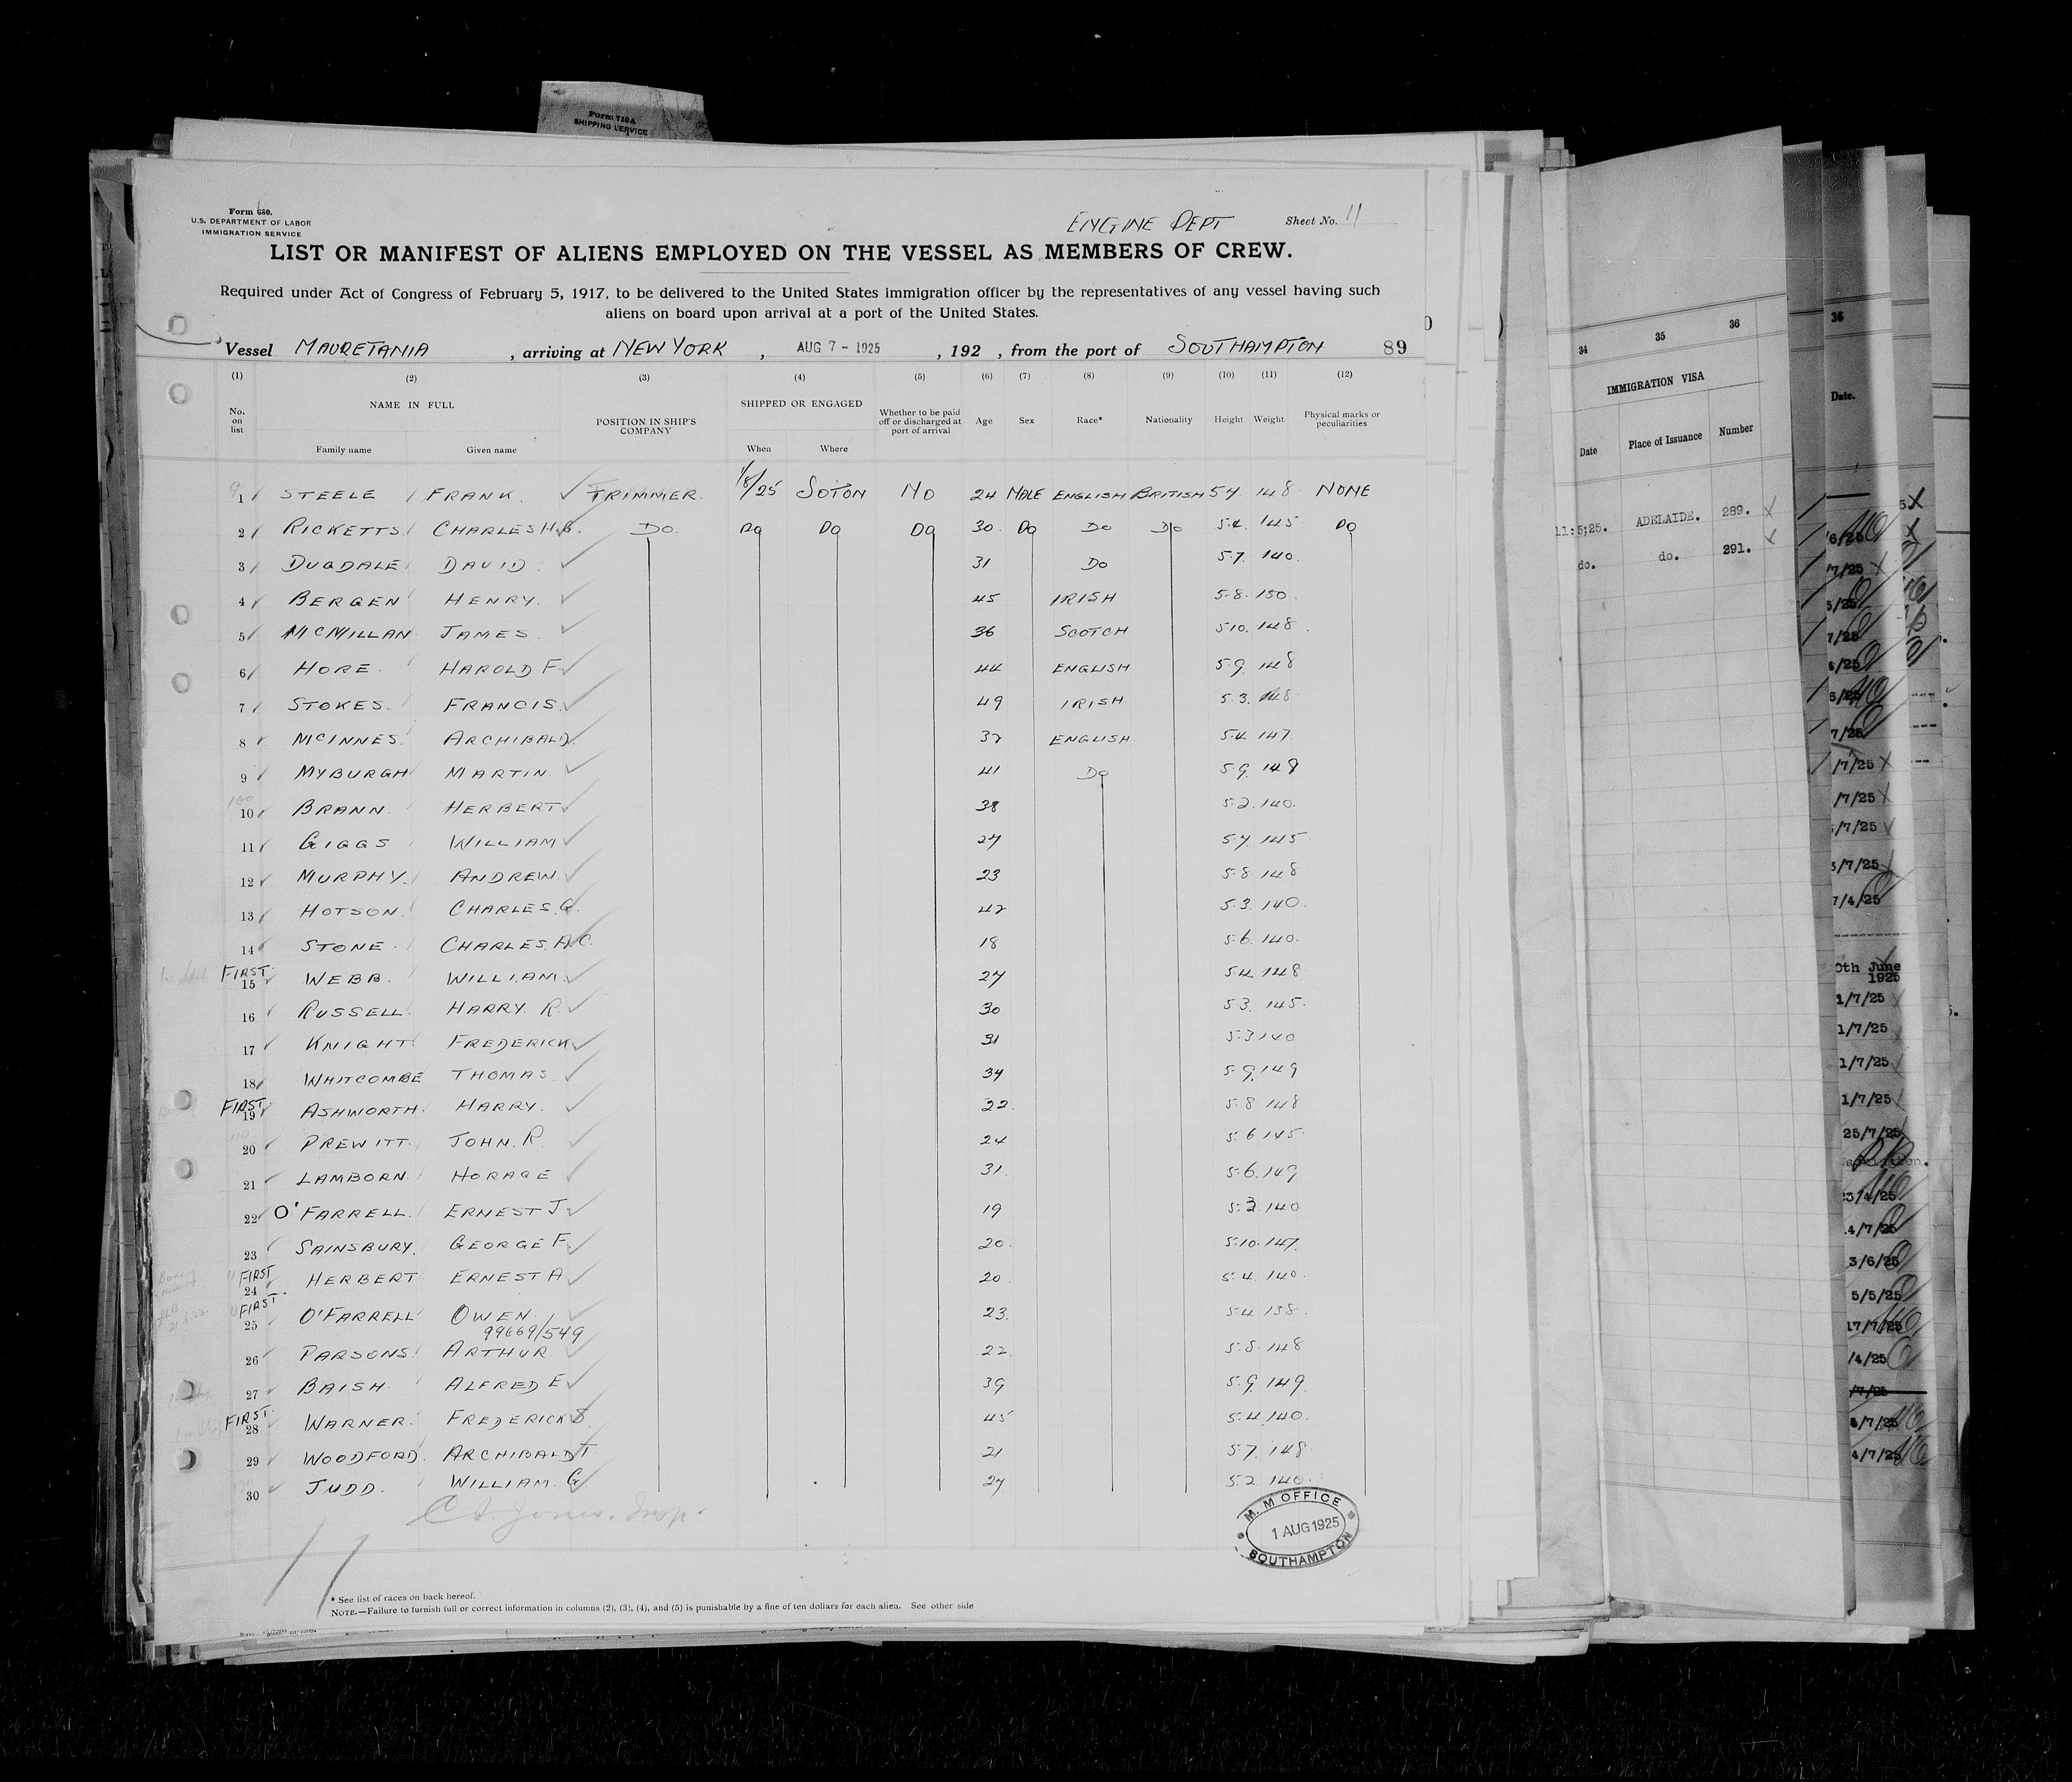 Form 710A
SHIPPING SERVICE
Form 680.
U.S. DEPARTMENT OF LABOR
IMMIGRATION SERVICE
ENGINE DEPT Sheet No. 11
LIST OR MANIFEST OF ALIENS EMPLOYED ON THE VESSEL AS MEMBERS OF CREW.
Required under Act of Congress of February 5, 1917, to be delivered to the United States immigration officer by the representatives of any vessel having such
aliens on board upon arrival at a port of the United States.
Vessel MAURETANIA, arriving at NEW YORK, AUG 7 - 1925, 192 , from the port of SOUTHAMPTON 89
(1) (2) (3) (4) (5) (6) (7) (8) (9) (10) (11) (12)
No. on list NAME IN FULL Family name Given name POSITION IN SHIP'S COMPANY SHIPPED OR ENGAGED When Where Whether to be paid off or discharged at port of arrival Age Sex Race* Nationality Height Weight Physical marks or peculiarities
1 STEELE FRANK. TRIMMER. 1/8/25 SOTON NO 24 MALE ENGLISH BRITISH 5 7 148 NONE
2 RICKETTS CHARLES H.G. DO. DO DO DO 30 DO DO DO 5.4. 145 DO
3 DUGDALE DAVID 31 DO 5.7. 140.
4 BERGEN HENRY. 45 IRISH 5.8. 150.
5 MCMILLAN JAMES. 36 SCOTCH 5.10. 148.
6 HORE. HAROLD F 44 ENGLISH 5.9. 148
7 STOKES. FRANCIS. 49 IRISH 5.3. 148
8 MCINNES. ARCHIBALD. 32 ENGLISH. 5.4. 147
9 MYBURGH MARTIN. 41 DO 5.9. 149
10 BRANN. HERBERT 38 5.2. 140.
11 GIGGS WILLIAM 27 5.7. 145
12 MURPHY. ANDREW. 23 5.8 148
13 HOTSON. CHARLES. G. 42 5.3. 140.
14 STONE. CHARLES. A.C. 18 5.6. 140.
FIRST 15 WEBB. WILLIAM. 27 5.4. 148
16 RUSSELL. HARRY. R. 30 5.3. 145.
17 KNIGHT FREDERICK 31 5.3 140
18 WHITCOMBE THOMAS. 34 5.9. 149
FIRST 19 ASHWORTH. HARRY. 22. 5.8. 148
20 PREWITT. JOHN. R. 24 5.6 145
21 LAMBORN. HORACE 31. 5.6. 149
22 O'FARRELL. ERNEST J. 19 5.3. 140
23 SAINSBURY. GEORGE F. 20. 5.10. 147.
FIRST 24 HERBERT ERNEST A 20 5.4. 140.
FIRST 25 O'FARRELL OWEN. 23. 5.4. 138.
99669/549
26 PARSONS ARTHUR 22. 5.8. 148
27 BAISH ALFRED E 39 5.9. 149.
FIRST 28 WARNER. FREDERICK S. 45 5.4. 140.
29 WOODFORD. ARCHIBALD T 21 5.7. 148
30 JUDD. WILLIAM. G. 27 5.2. 140.
C A. Jones. Insp.
M. M OFFICE
1 AUG 1925
SOUTHAMPTON
11
* See list of races on back hereof.
NOTE.—Failure to furnish full or correct information in columns (2), (3), (4), and (5) is punishable by a fine of ten dollars for each alien. See other side
34 35 36
IMMIGRATION VISA
Date Place of Issuance Number
11:5;25. ADELAIDE. 289. X
do. do. 291. X
36
Date.
7/25
/7/25
/7/25
7/4/25
0th June
1925
1/7/25
1/7/25
1/7/25
1/7/25
25/7/25
3/6/25
5/5/25
17/7/25
/4/25
/7/25
4/7/25